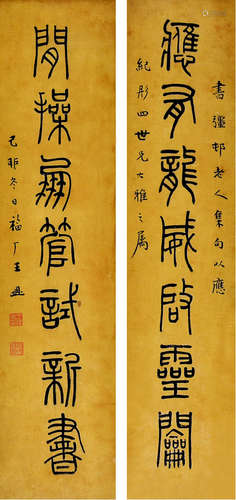 書彊邨老人集句以應
應有龍威啟靈𨷲
紀彤四世兄大雅之屬
閒操兔管試新書
己卯冬日福厂王禔